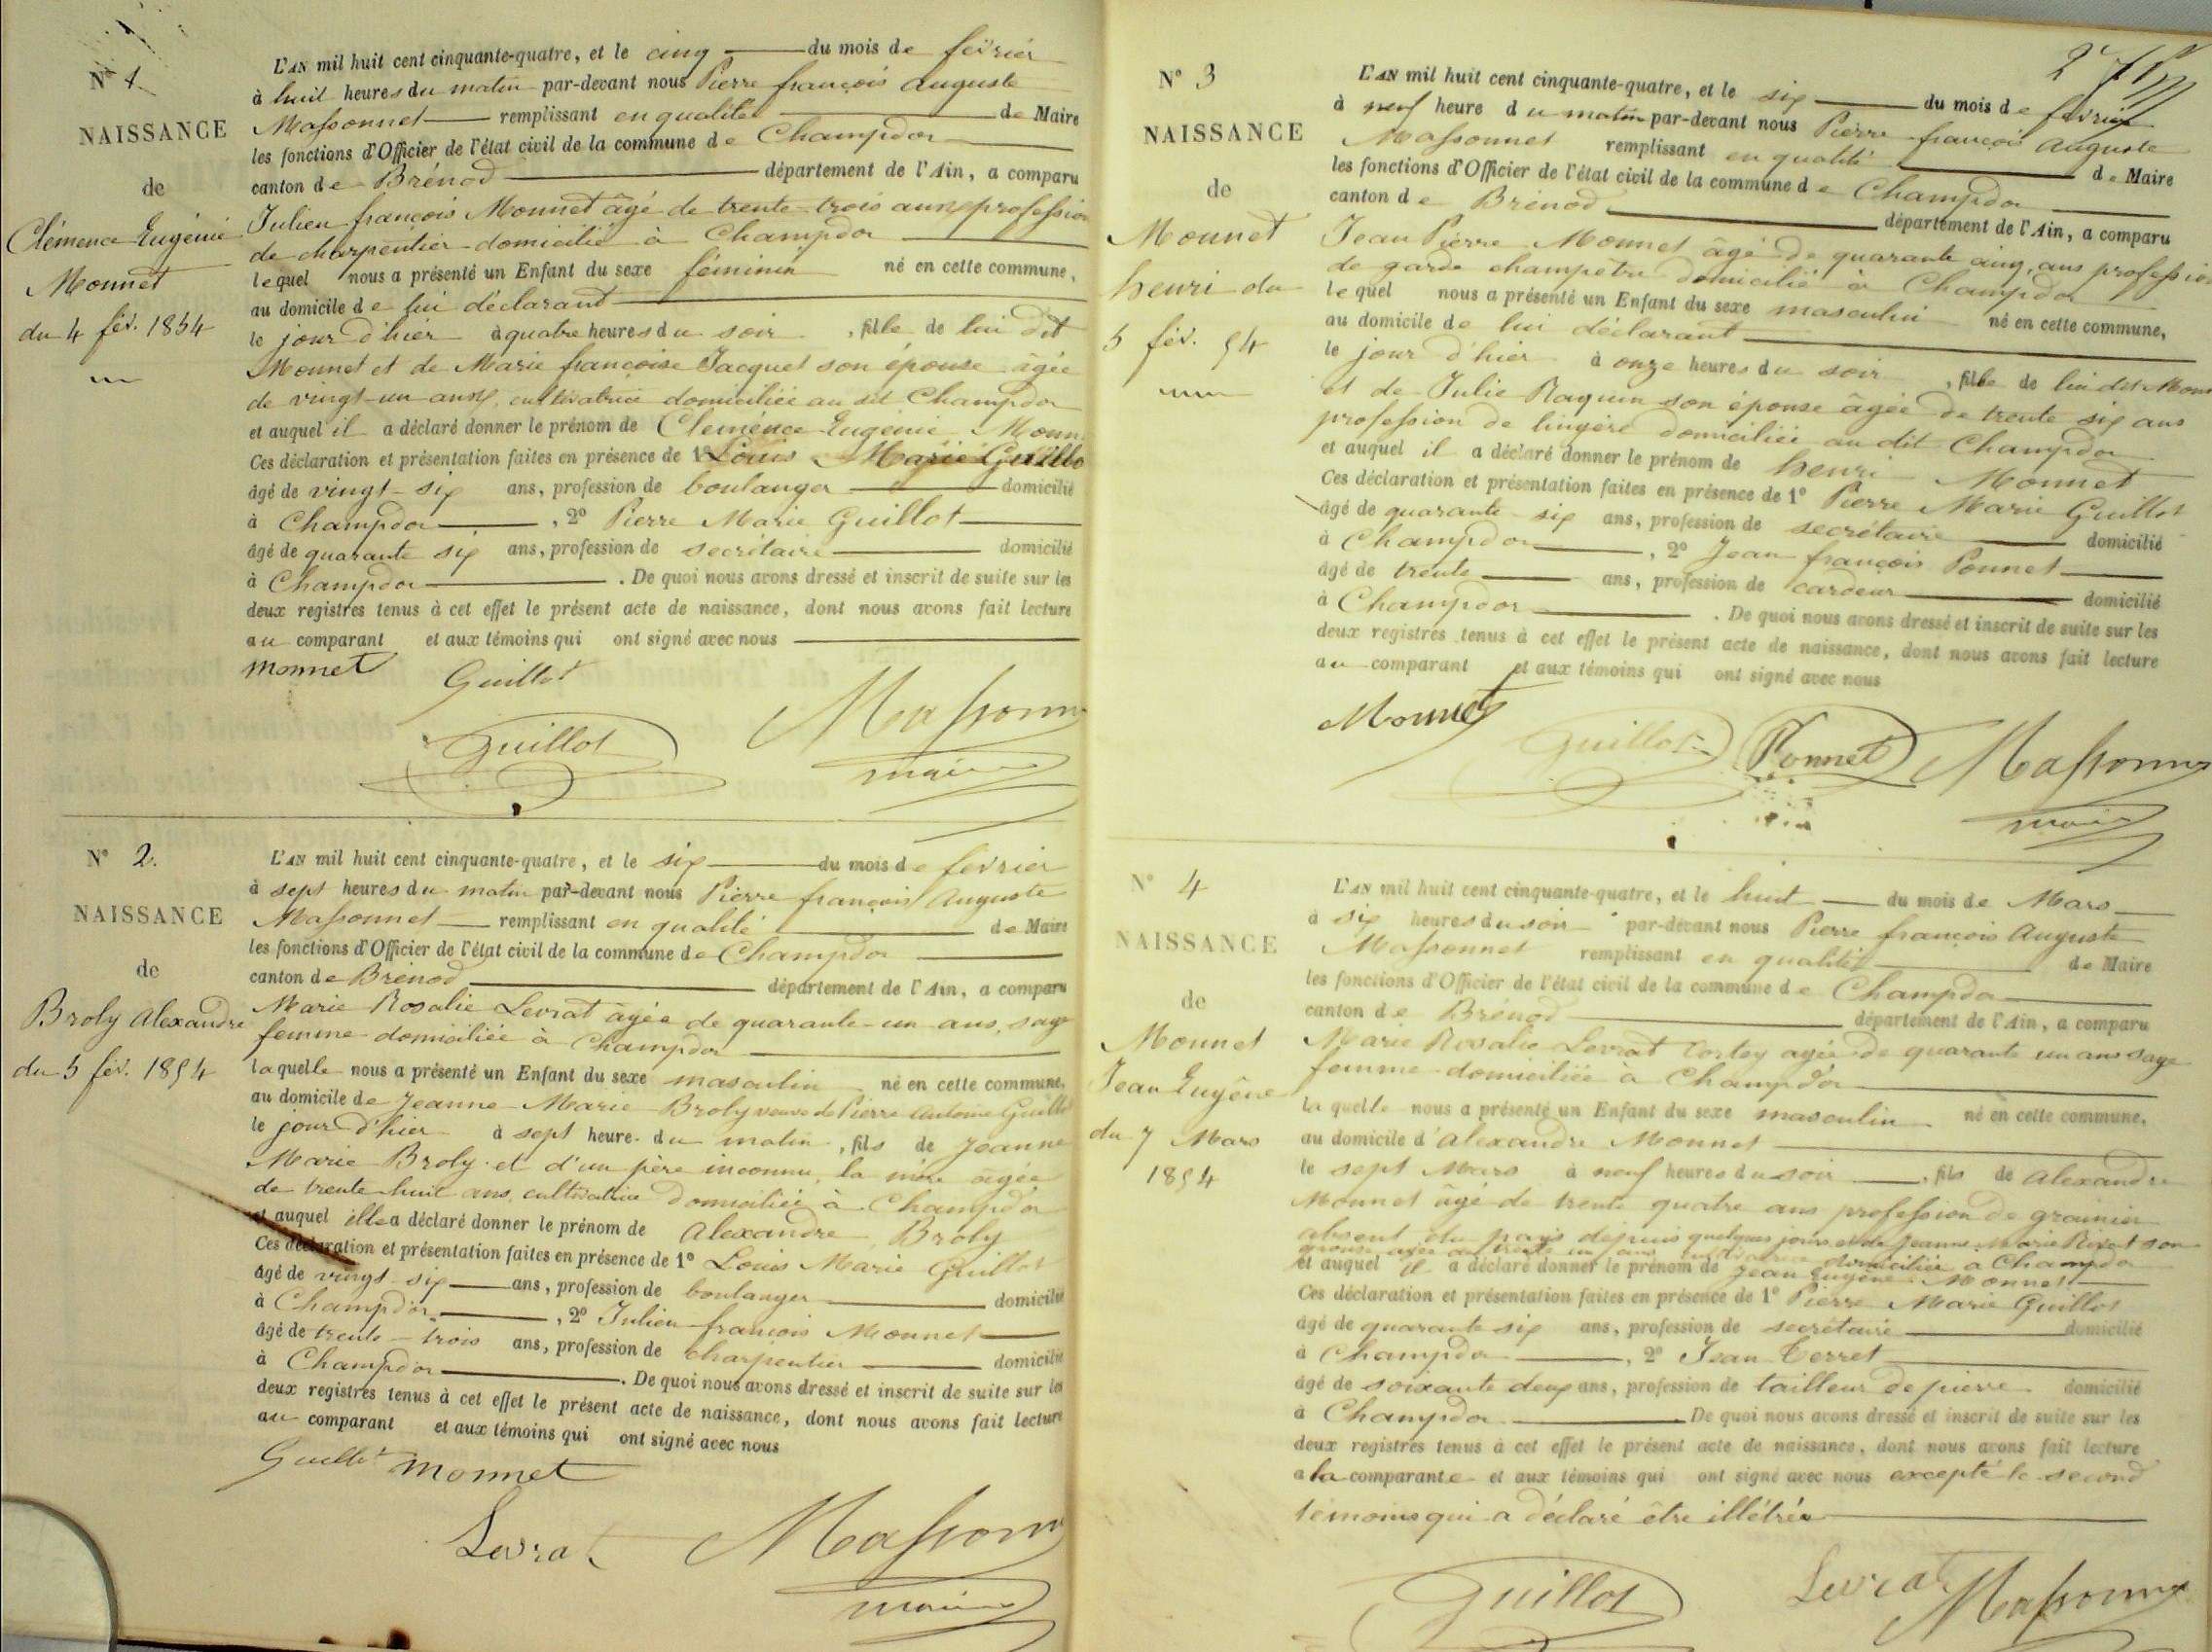 N° 1
NAISSANCE
de
Clémence Eugénie
Monnet
du 4 fév. 1854
L'AN mil huit cent cinquante-quatre, et le cinq du mois de février
à huit heures du matin par-devant nous Pierre françois Auguste
Massonnet remplissant en qualité de Maire
les fonctions d'Officier de l'état civil de la commune de Champdor
canton de Brénod département de l'Ain, a comparu
Julien françois Monnet âgé de trente-trois ans profession
de charpentier domicilié à Champdor
lequel nous a présenté un Enfant du sexe féminin né en cette commune,
au domicile de lui déclarant
le jour d'hier à quatre heures du soir, fille de lui dit
Monnet et de Marie françoise Jacquet son épouse âgée
de vingt-un ans, cultivatrice domiciliée au dit Champdor
et auquel il a déclaré donner le prénom de Clémence Eugénie Monn
Ces déclaration et présentation faites en présence de 1° Louis Marie Guillo
âgé de vingt-six ans, profession de boulanger domicilié
à Champdor, 2° Pierre Marie Guillot
âgé de quarante six ans, profession de secrétaire domicilié
à Champdor. De quoi nous avons dressé et inscrit de suite sur les
deux registres tenus à cet effet le présent acte de naissance, dont nous avons fait lecture
au comparant et aux témoins qui ont signé avec nous
Monnet Guillot
Guillot Massonn
maire
N° 2.
NAISSANCE
de
Broly Alexandre
du 5 fév. 1854
L'AN mil huit cent cinquante-quatre, et le six du mois de février
à sept heures du matin par-devant nous Pierre françois Auguste
Massonnet remplissant en qualité de Maire
les fonctions d'Officier de l'état civil de la commune de Champdor
canton de Brénod département de l'Ain, a comparu
Marie Rosalie Levrat âgée de quarante-un ans, sage
femme domiciliée à Champdor
laquelle nous a présenté un Enfant du sexe masculin né en cette commune,
au domicile de Jeanne Marie Broly veuve de Pierre Antoine Guillot
le jour d'hier à sept heure du matin, fils de Jeanne
Marie Broly et d'un père inconnu, la mère âgée
de trente-huit ans, cultivatrice domiciliée à Champdor
et auquel elle a déclaré donner le prénom de Alexandre Broly
Ces déclaration et présentation faites en présence de 1° Louis Marie Guillot
âgé de vingt-six ans, profession de boulanger domicilié
à Champdor, 2° Julien françois Monnet
âgé de trente-trois ans, profession de charpentier domicilié
à Champdor. De quoi nous avons dressé et inscrit de suite sur les
deux registres tenus à cet effet le présent acte de naissance, dont nous avons fait lecture
au comparant et aux témoins qui ont signé avec nous
Guillot Monnet
Levrat Massonn
maire
N° 3
NAISSANCE
de
Monnet
henri du
5 fév. 54
L'AN mil huit cent cinquante-quatre, et le six du mois de février
à neuf heure du matin par-devant nous Pierre françois Auguste
Massonnet remplissant en qualité de Maire
les fonctions d'Officier de l'état civil de la commune de Champdor
canton de Brénod département de l'Ain, a comparu
Jean Pierre Monnet âgé de quarante cinq, ans profession
de garde champêtre domicilié à Champdor
lequel nous a présenté un Enfant du sexe masculin né en cette commune,
au domicile de lui déclarant
le jour d'hier à onze heures du soir, fille de lui dit Monn
et de Julie Raquin son épouse âgée de trente six ans
profession de lingère domiciliée au dit Champdor
et auquel il a déclaré donner le prénom de henri Monnet
Ces déclaration et présentation faites en présence de 1° Pierre Marie Guillot
âgé de quarante-six ans, profession de secrétaire domicilié
à Champdor, 2° Jean françois Ponnet
âgé de trente ans, profession de cardeur domicilié
à Champdor. De quoi nous avons dressé et inscrit de suite sur les
deux registres tenus à cet effet le présent acte de naissance, dont nous avons fait lecture
au comparant et aux témoins qui ont signé avec nous
Monnet
Guillot Ponnet Massonn
maire
N° 4
NAISSANCE
de
Monnet
Jean Eugène
du 7 Mars
1854
L'AN mil huit cent cinquante-quatre, et le huit du mois de Mars
à six heures du soir par-devant nous Pierre françois Auguste
Massonnet remplissant en qualité de Maire
les fonctions d'Officier de l'état civil de la commune de Champdor
canton de Brénod département de l'Ain, a comparu
Marie Rosalie Levrat Cortey agée de quarante un ans sage
femme domiciliée à Champdor
laquelle nous a présenté un Enfant du sexe masculin né en cette commune,
au domicile d'Alexandre Monnet
le sept Mars à neuf heures du soir, fils de Alexandre
Monnet âgé de trente quatre ans profession de grainier
absent du pays depuis quelques jours et de Jeanne Marie son
épouse agée de trente un ans cultivatrice domiciliée à Champdor
et auquel il a déclaré donner le prénom de Jean Eugène Monnet
Ces déclaration et présentation faites en présence de 1° Pierre Marie Guillot
âgé de quarante six ans, profession de secrétaire domicilié
à Champdor, 2° Jean Terret
âgé de soixante deux ans, profession de tailleur de pierre domicilié
à Champdor De quoi nous avons dressé et inscrit de suite sur les
deux registres tenus à cet effet le présent acte de naissance, dont nous avons fait lecture
a la comparante et aux témoins qui ont signé avec nous excepté le second
témoins qui a déclaré être illétrée
Guillot Levrat Massonn